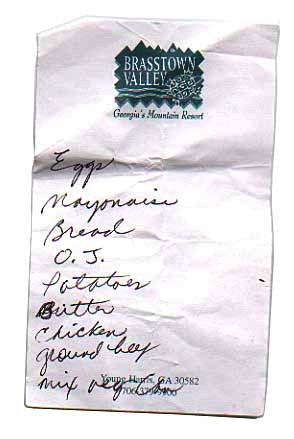 BRASSTOWN
VALLEY
Georgia's Mountain Resort
Eggs
Mayonaise
Bread
O.J.
Potatoes
Butter
Chicken
ground beef
mix veg
Young Harris, GA 30582